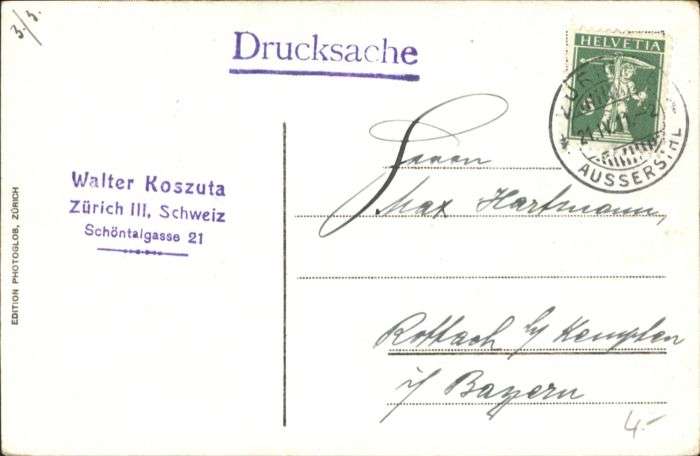 3./3.
Drucksache
HELVETIA
AUSSERSIHL
Walter Koszuta
Zürich III, Schweiz
Schöntalgasse 21
EDITION PHOTOGLOB, ZÜRICH
Herrn
Max Hartmann,
Rottach b/ Kempten
i/ Bayern
4.-